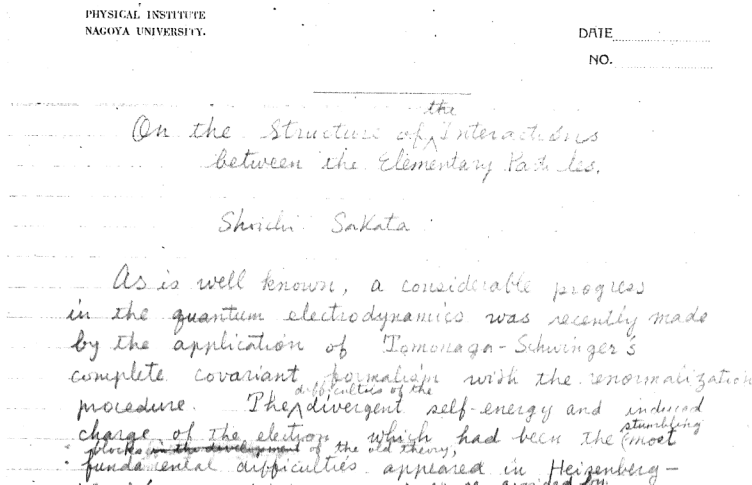 PHYSICAL INSTITUTE
NAGOYA UNIVERSITY.
DATE
NO.
On the Structure of the Interactions
between the Elementary Particles.
Shoichi Sakata
As is well known, a considerable progress
in the quantum electrodynamics was recently made
by the application of Tomonaga-Schwinger's
complete covariant formalism with the renormalization
procedure. The difficulties of the divergent self-energy and induced
charge of the electron which had been the most stumbling
blocks in the development of the old theory,
fundamental difficulties appeared in Heizenberg-